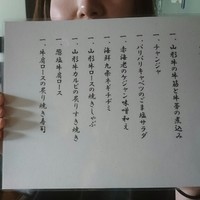 一、山形牛の牛筋と牛蒡の煮込み
一、チャンジャ
一、パリパリキャベツのごま塩サラダ
一、赤海老のケジャン味噌和え
一、海鮮九条ネギチヂミ
一、山形牛ロースの焼きしゃぶ
一、山形牛カルビの炙りすき焼き
一、葱塩牛肩ロース
一、牛肩ロースの炙り焼き寿司